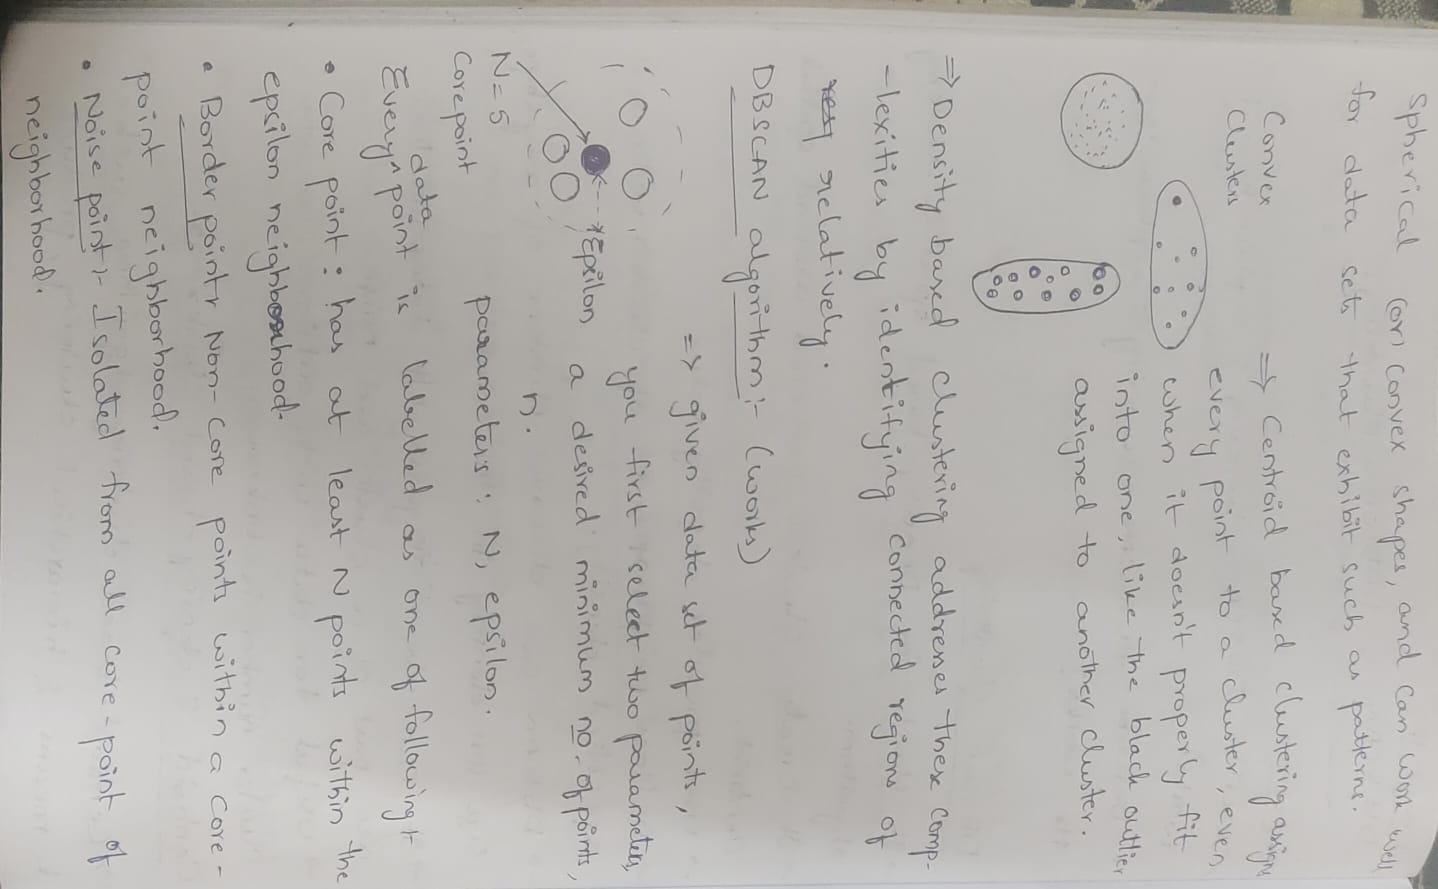 Spherical (or) convex shapes, and can work well
for data sets that exhibit such as patterns.
Convex
Clusters
=> Centroid based clustering assigns
every point to a cluster, even
when it doesn't properly fit
into one, like the black outlier
assigned to another cluster.
=> Density based clustering addresses these comp-
-lexities by identifying connected regions of
relatively.
DBSCAN algorithm:- (works)
=> given data set of points,
you first select two parameters,
a desired minimum no. of points,
n.
Epsilon
N=5
Core point
parameters: N, epsilon.
Every data point is labelled as one of following:-
• Core point: has at least N points within the
epsilon neighborhood.
• Border point:- Non-core points within a core-
point neighborhood.
• Noise point:- Isolated from all core-point of
neighborhood.